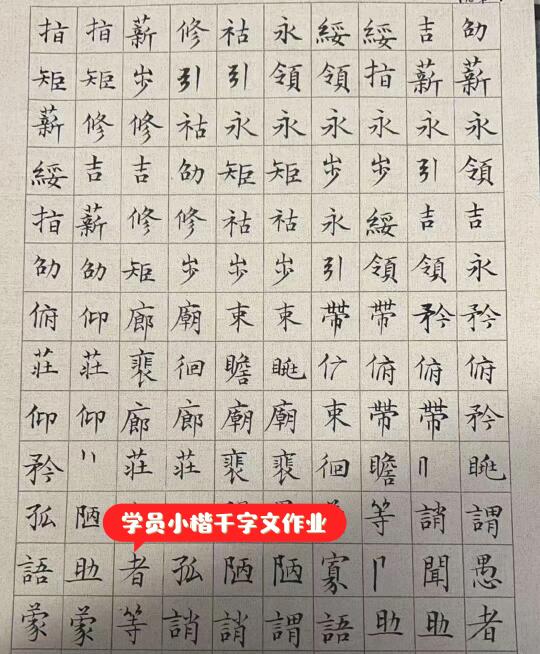 指指薪修祜永綏綏吉劭
矩矩步引引領領指薪薪
薪修修祜永永永永永永
綏吉吉劭矩矩步步引領
指薪修修祜祜永綏吉吉
劭劭矩步步步引領領永
俯仰廊廟束束帶帶矜矜
莊莊裵徊瞻眺俯俯俯
仰仰廊廊廟廟束帶帶矜
矜莊莊裵裵徊瞻眺
孤陋等誚謂
学员小楷千字文作业
語助者孤陋陋寡聞愚
蒙蒙等誚誚謂語助助者